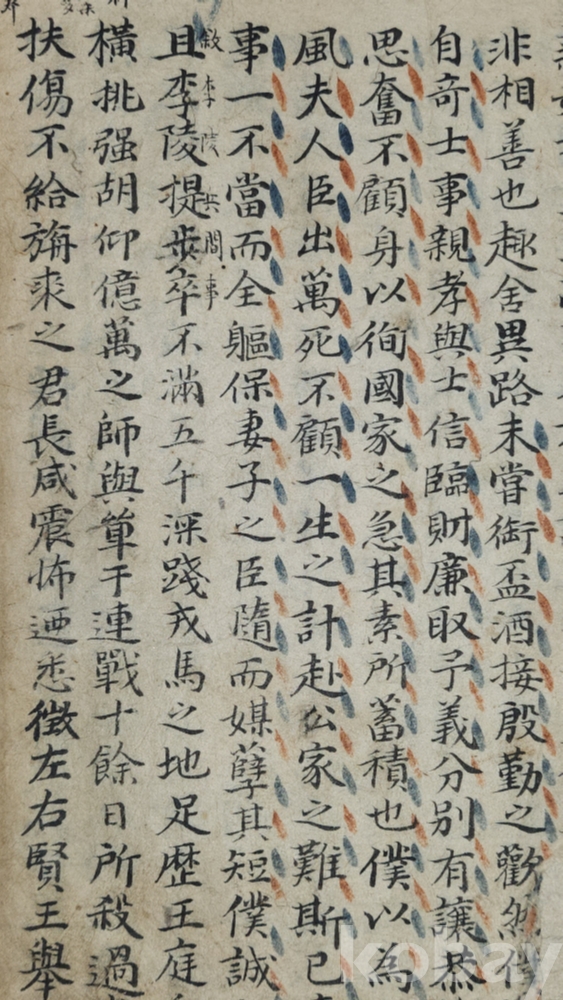 非相善也趣舍異路未嘗銜盃酒接殷勤之歡然僕
自奇士事親孝與士信臨財廉取予義分別有讓恭
思奮不顧身以徇國家之急其素所蓄積也僕以為
風夫人臣出萬死不顧一生之計赴公家之難斯已
事一不當而全軀保妻子之臣隨而媒孽其短僕誠
敘李陵共間事
且李陵提步卒不滿五千深踐戎馬之地足歷王庭
橫挑强胡仰億萬之師與單于連戰十餘日所殺過
扶傷不給旃裘之君長咸震怖迺悉徵左右賢王舉
kobay